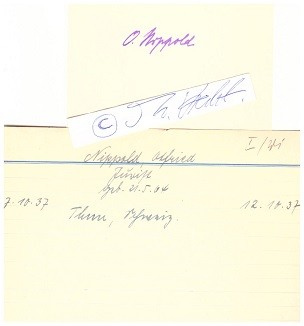 O. Nippold
©
I/
Nippold, Otfried
Jurist
geb. 21.5.64
7.10.37 Thun, Schweiz. 12.10.37